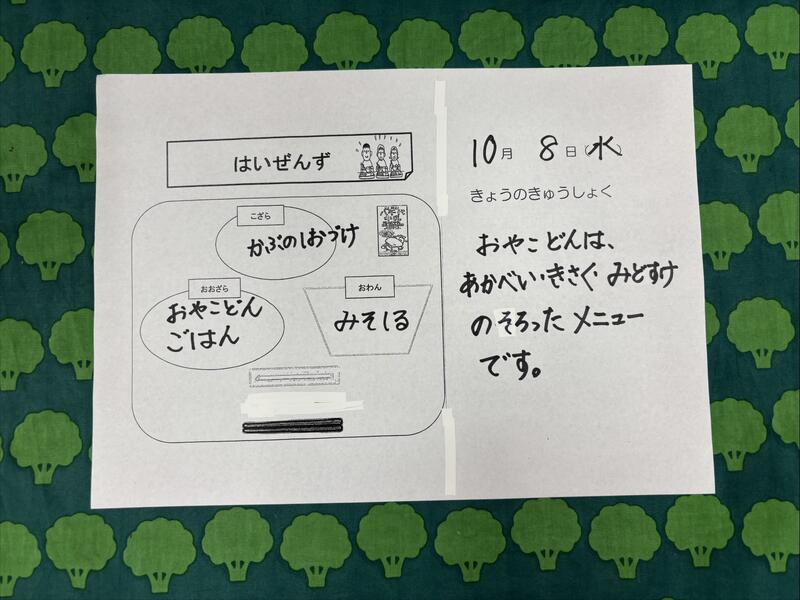 はいぜんず
こざら
かぶのしおづけ
おおざら
おやこどん
ごはん
おわん
みそしる
10月 8日(水)
きょうのきゅうしょく
おやこどんは、
あかべい・きさく・みどすけ
のそろったメニュー
です。